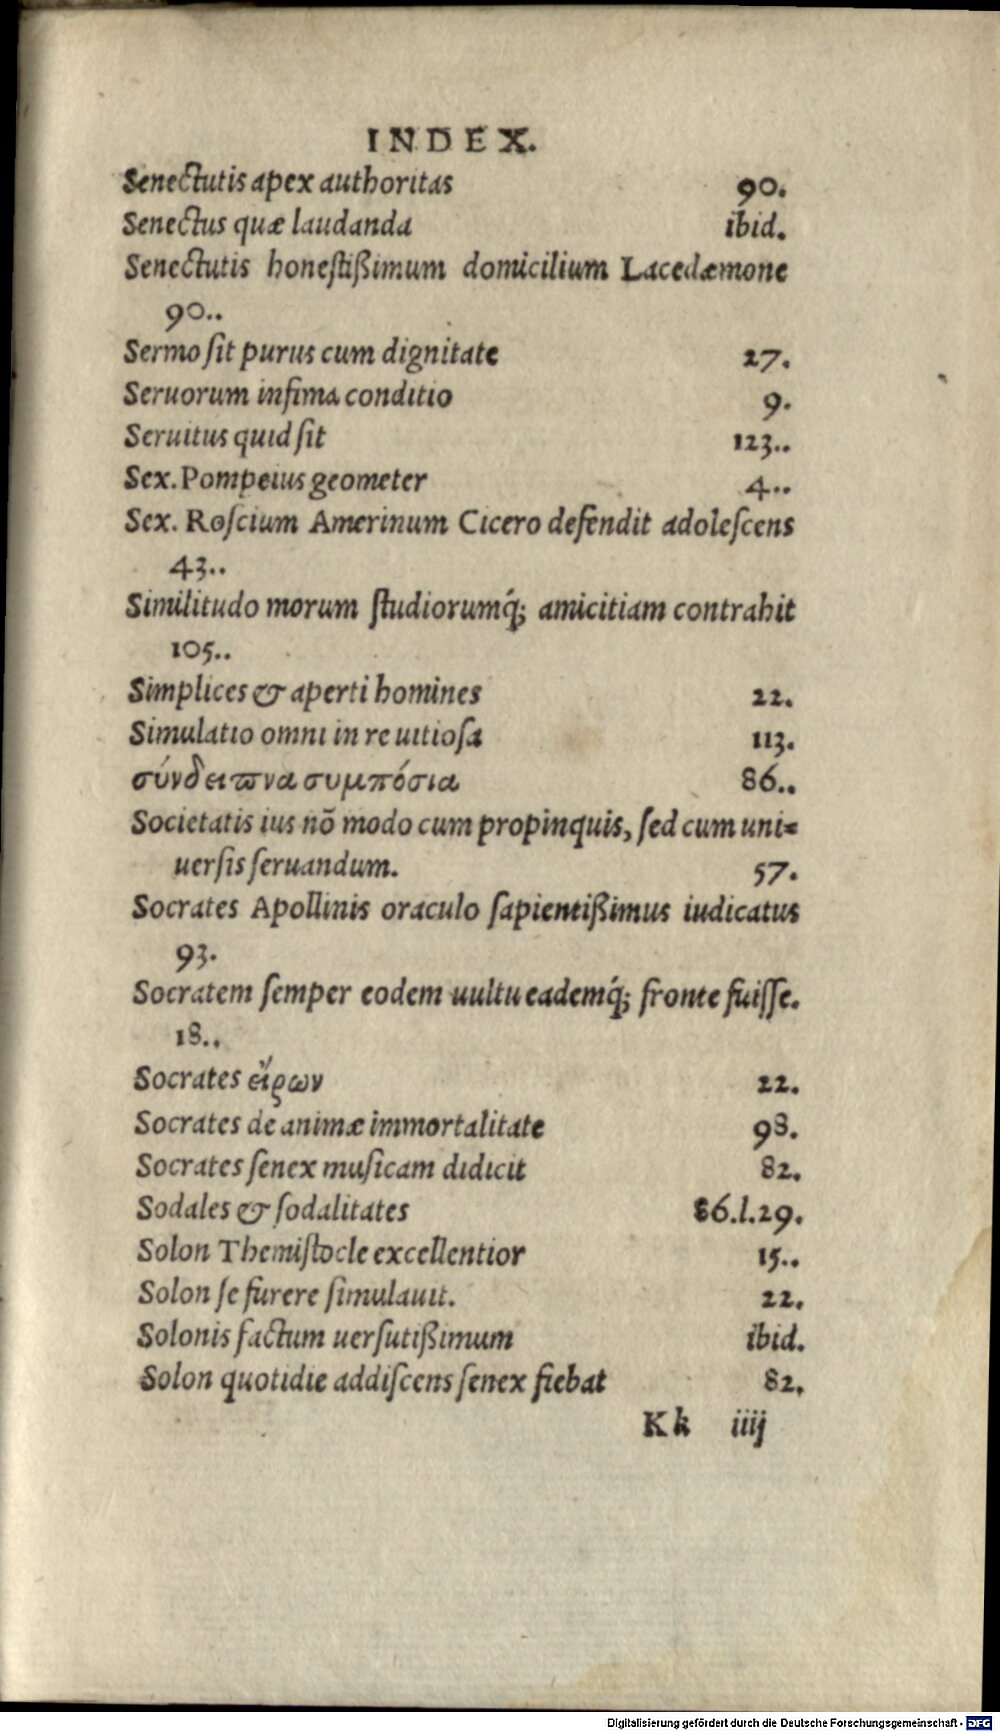 INDEX.
Senectutis apex authoritas 90.
Senectus quæ laudanda ibid.
Senectutis honeſtißimum domicilium Lacedæmone
90..
Sermo ſit purus cum dignitate 27.
Seruorum infima conditio 9.
Seruitus quid ſit 123..
Sex. Pompeius geometer 4..
Sex. Roſcium Amerinum Cicero defendit adoleſcens
43..
Similitudo morum ſtudiorumq́; amicitiam contrahit
105..
Simplices & aperti homines 22.
Simulatio omni in re uitioſa 113.
σύνδειϖνα συμπόσια 86..
Societatis ius nõ modo cum propinquis, ſed cum uni=
uerſis ſeruandum. 57.
Socrates Apollinis oraculo ſapientißimus iudicatus
93.
Socratem ſemper eodem uultu eademq́; fronte fuiſſe.
18..
Socrates εἴρων 22.
Socrates de animæ immortalitate 98.
Socrates ſenex muſicam didicit 82.
Sodales & ſodalitates 86.l.29.
Solon Themiſtocle excellentior 15..
Solon ſe furere ſimulauit. 22.
Solonis factum uerſutißimum ibid.
Solon quotidie addiſcens ſenex fiebat 82.
Kk iiij
Digitalisierung gefördert durch die Deutsche Forschungsgemeinschaft - DFG